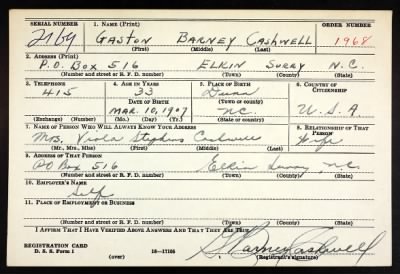 SERIAL NUMBER 1. NAME (Print) ORDER NUMBER
GASTON BARNEY CASHWELL 1968
(First) (Middle) (Last)
2. ADDRESS (Print)
P.O. BOX 516 ELKIN SURRY N.C.
(Number and street or R. F. D. number) (Town) (County) (State)
3. TELEPHONE 4. AGE IN YEARS 5. PLACE OF BIRTH 6. COUNTRY OF CITIZENSHIP
415 33 Dunn
DATE OF BIRTH (Town or county)
MAR. 10, 1907 N.C. U.S.A
(Exchange) (Number) (Mo.) (Day) (Yr.) (State or country)
7. NAME OF PERSON WHO WILL ALWAYS KNOW YOUR ADDRESS 8. RELATIONSHIP OF THAT PERSON
Mrs. Viola Stephens Cashwell Wife
(Mr., Mrs., Miss) (First) (Middle) (Last)
9. ADDRESS OF THAT PERSON
PO Box 516 Elkin Surry N.C.
(Number and street or R. F. D. number) (Town) (County) (State)
10. EMPLOYER'S NAME
Self
11. PLACE OF EMPLOYMENT OR BUSINESS
(Number and street or R. F. D. number) (Town) (County) (State)
I AFFIRM THAT I HAVE VERIFIED ABOVE ANSWERS AND THAT THEY ARE TRUE.
REGISTRATION CARD
D. S. S. Form 1 (over) 16—17105 G. Barney Cashwell
(Registrant's signature)